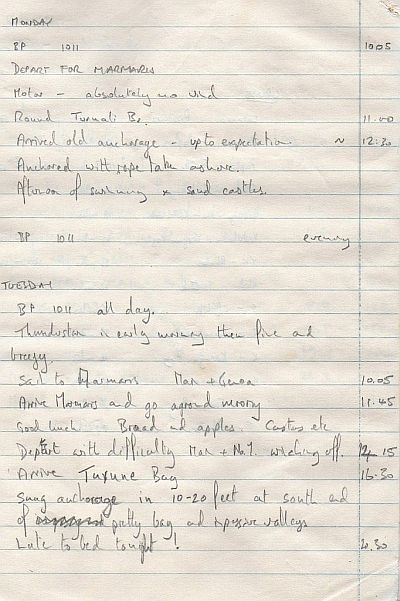 MONDAY
BP 1011 10.05
DEPART FOR MARMARIS
Motor - absolutely no wind
Round Turnali Br. 11.00
Arrived old anchorage - up to expectation ~ 12.30
Anchored with rope taken ashore.
Afternoon of swimming & sand castles.
BP 1011 evening
TUESDAY
BP 1011 all day.
Thunderstorm in early morning then fine and
breezy.
Sail to Marmaris Main + Genoa 10.05
Arrive Marmaris and go aground mooring 11.45
Good lunch. Bread and apples. Customs etc
Depart with difficulty Main + No.1. winching off. 14 15
Arrive Tuxune Bay 16.30
Snug anchorage in 10-20 feet at south end
of pretty bay and impressive valleys
Late to bed tonight!